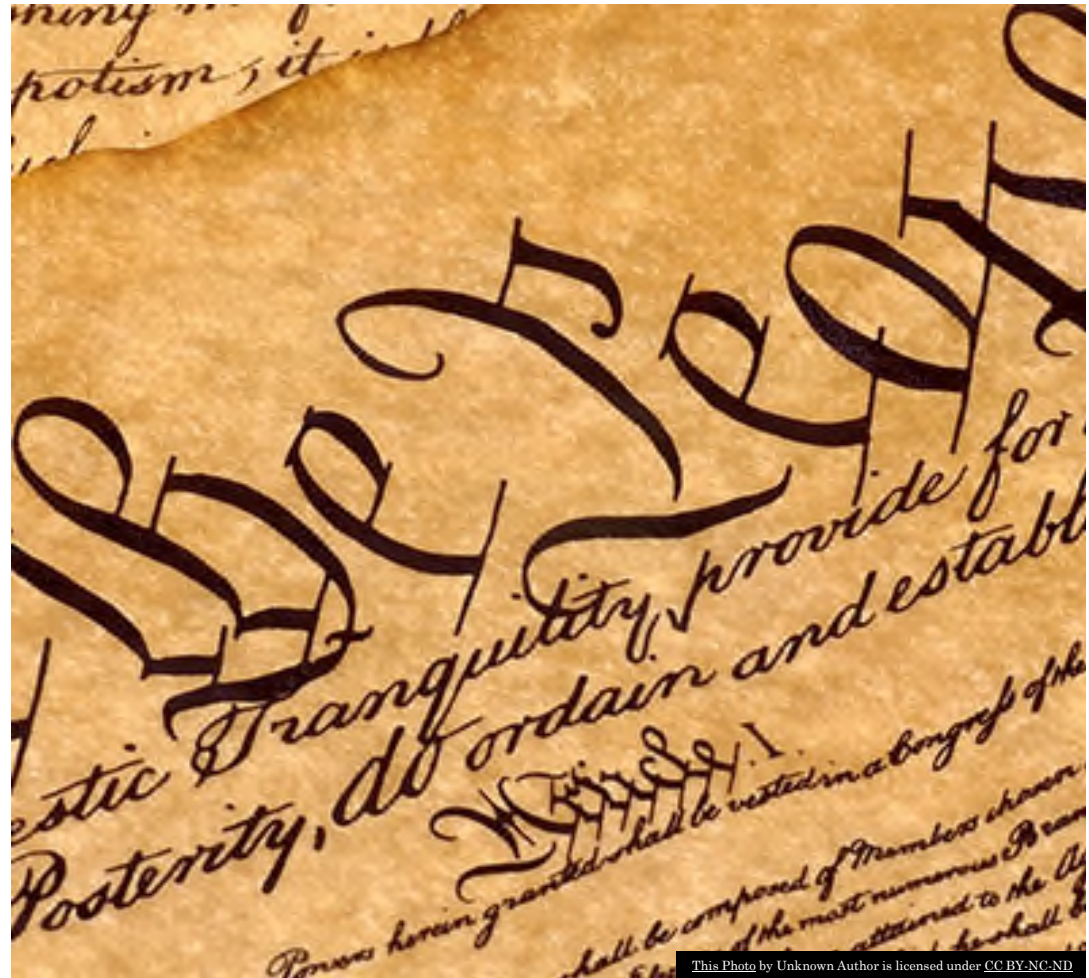 potism, it is
he Peop
estic Tranquility, provide for
Posterity, do ordain and establ
Article. I.
Powers herein granted shall be vested in a Congreſs of the
shall be composed of Members chosen
of the most numerous Bran
attained to the A
he shall b
This Photo by Unknown Author is licensed under CC BY-NC-ND